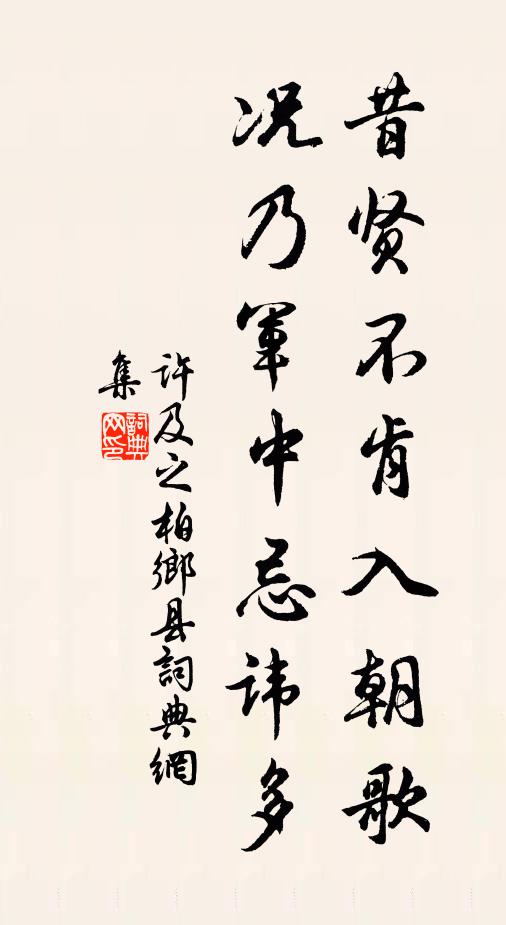 昔贤不肯入朝歌
况乃军中忌讳多
许及之柏鄉县詞典網
集
詞典网印